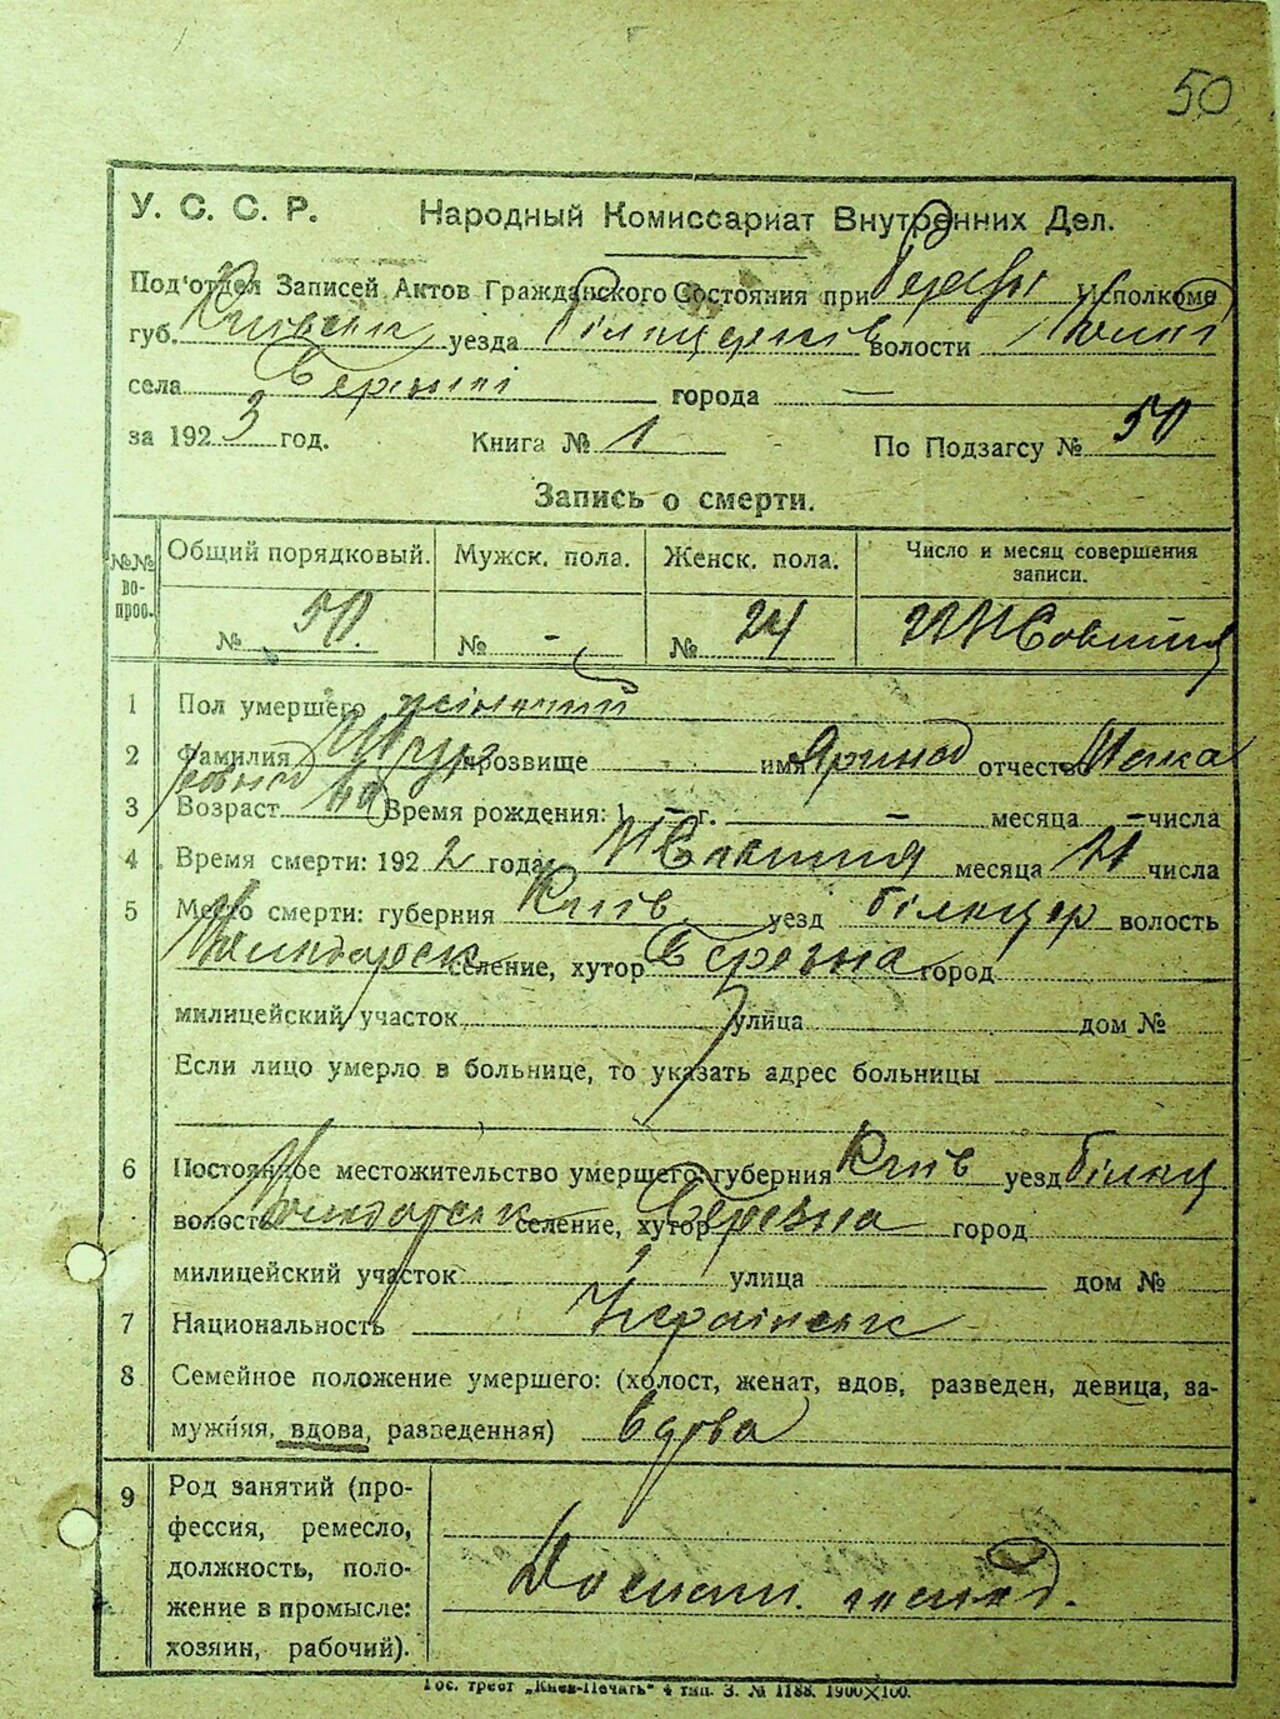 50
У. С. С. Р. Народный Комиссариат Внутренних Дел.
Под'отдел Записей Актов Гражданского Состояния при Исполкоме
губ. Київськ уезда білоцерків волости
села города —
за 1923 год. Книга № 1 По Подзагсу № 50
Запись о смерти.
№№ вопрос. Общий порядковый. Мужск. пола. Женск. пола. Число и месяц совершения записи.
№ 50. № - № 24
1 Пол умершего жіночий
2 Фамилия прозвище имя Ярина отчество
3 Возраст Время рождения: 1 — г. — месяца — числа
4 Время смерти: 1922 года месяца 21 числа
5 Место смерти: губерния Київ уезд білоцер волость
селение, хутор Березна город
милицейский участок улица дом №
Если лицо умерло в больнице, то указать адрес больницы
6 Постоянное местожительство умершего: губерния Київ уезд білоц
волость селение, хутор Березна город
милицейский участок улица дом №
7 Национальность Українск
8 Семейное положение умершего: (холост, женат, вдов, разведен, девица, за-
мужняя, вдова, разведенная) вдова
9 Род занятий (про-
фессия, ремесло,
должность, поло-
жение в промысле:
хозяин, рабочий).
Домаш. господ.
Гос. трест „Киев-Печать" 4 тип. З. № 1188. 1900X100.